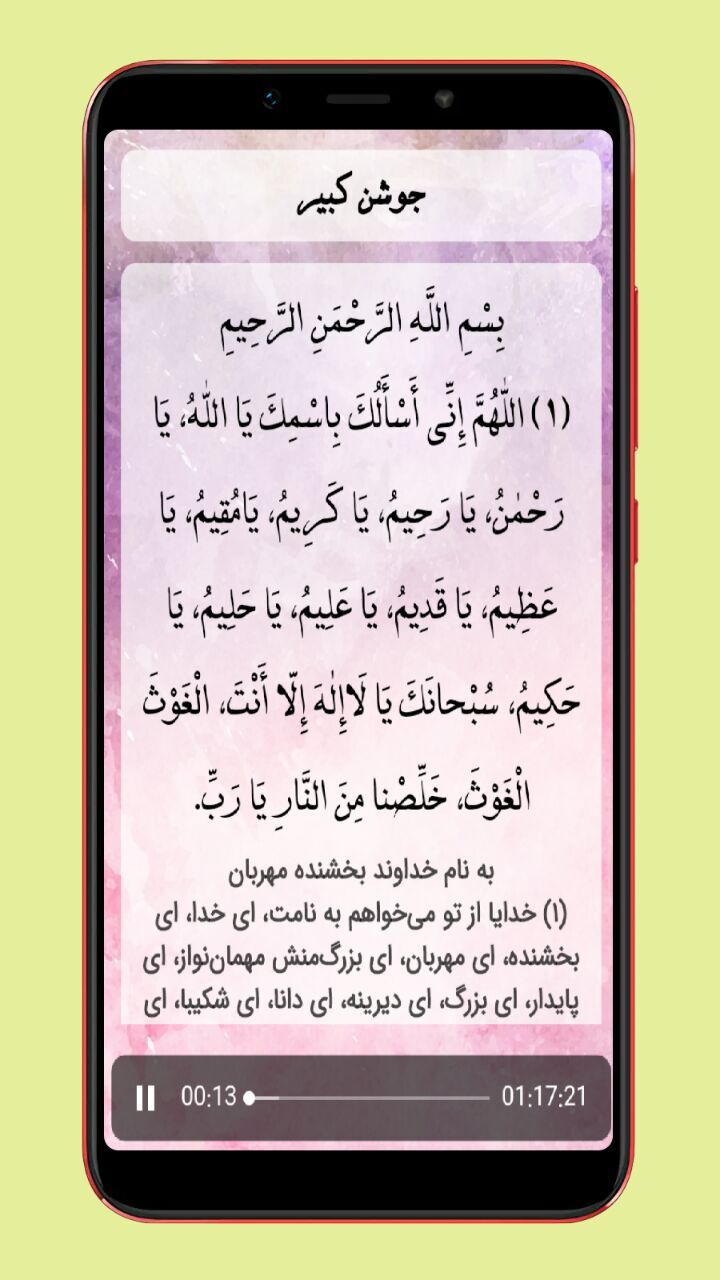 جوشن کبیر
بِسْمِ اللَّهِ الرَّحْمَنِ الرَّحِيمِ
(۱) اللّٰهُمَّ إِنِّى أَسْأَلُكَ بِاسْمِكَ يَا اللّٰهُ، يَا
رَحْمٰنُ، يَا رَحِيمُ، يَا كَرِيمُ، يَامُقِيمُ، يَا
عَظِيمُ، يَا قَدِيمُ، يَا عَلِيمُ، يَا حَلِيمُ، يَا
حَكِيمُ، سُبْحانَكَ يَا لَاإِلٰهَ إِلّا أَنْتَ، الْغَوْثَ
الْغَوْثَ، خَلِّصْنا مِنَ النَّارِ يَا رَبِّ.
به نام خداوند بخشنده مهربان
(۱) خدایا از تو می‌خواهم به نامت، ای خدا، ای
بخشنده، ای مهربان، ای بزرگ‌منش مهمان‌نواز، ای
پایدار، ای بزرگ، ای دیرینه، ای دانا، ای شکیبا، ای
00:13 01:17:21